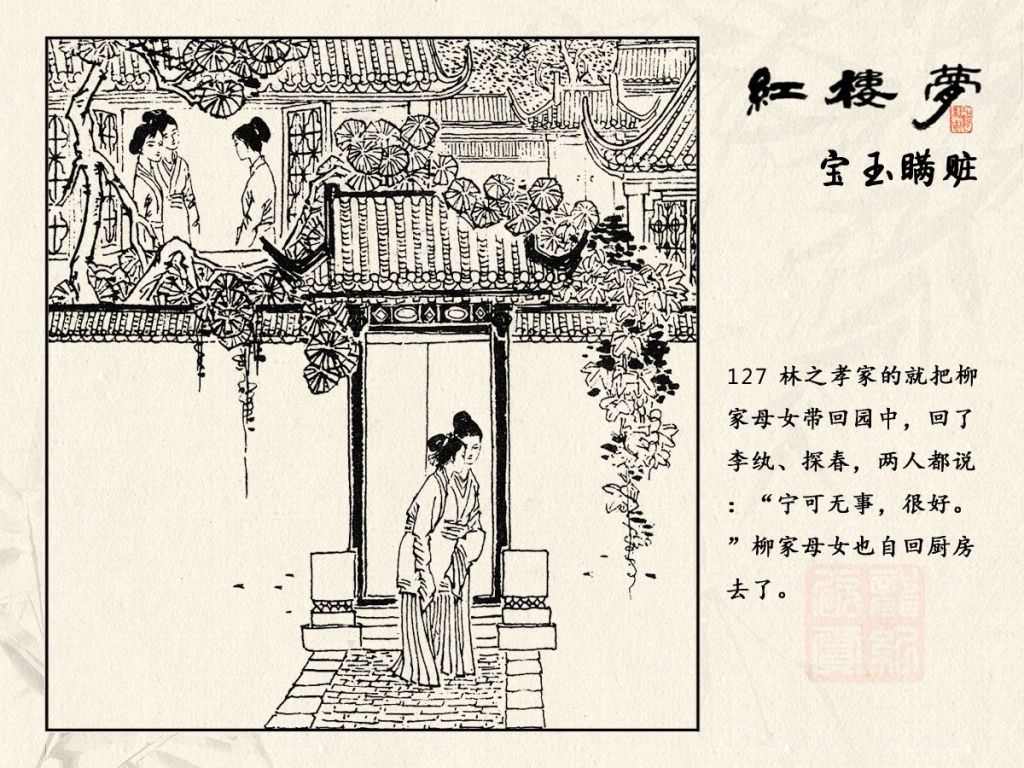 紅樓夢
宝玉瞒赃
127 林之孝家的就把柳
家母女带回园中，回了
李纨、探春，两人都说
：“宁可无事，很好。
”柳家母女也自回厨房
去了。